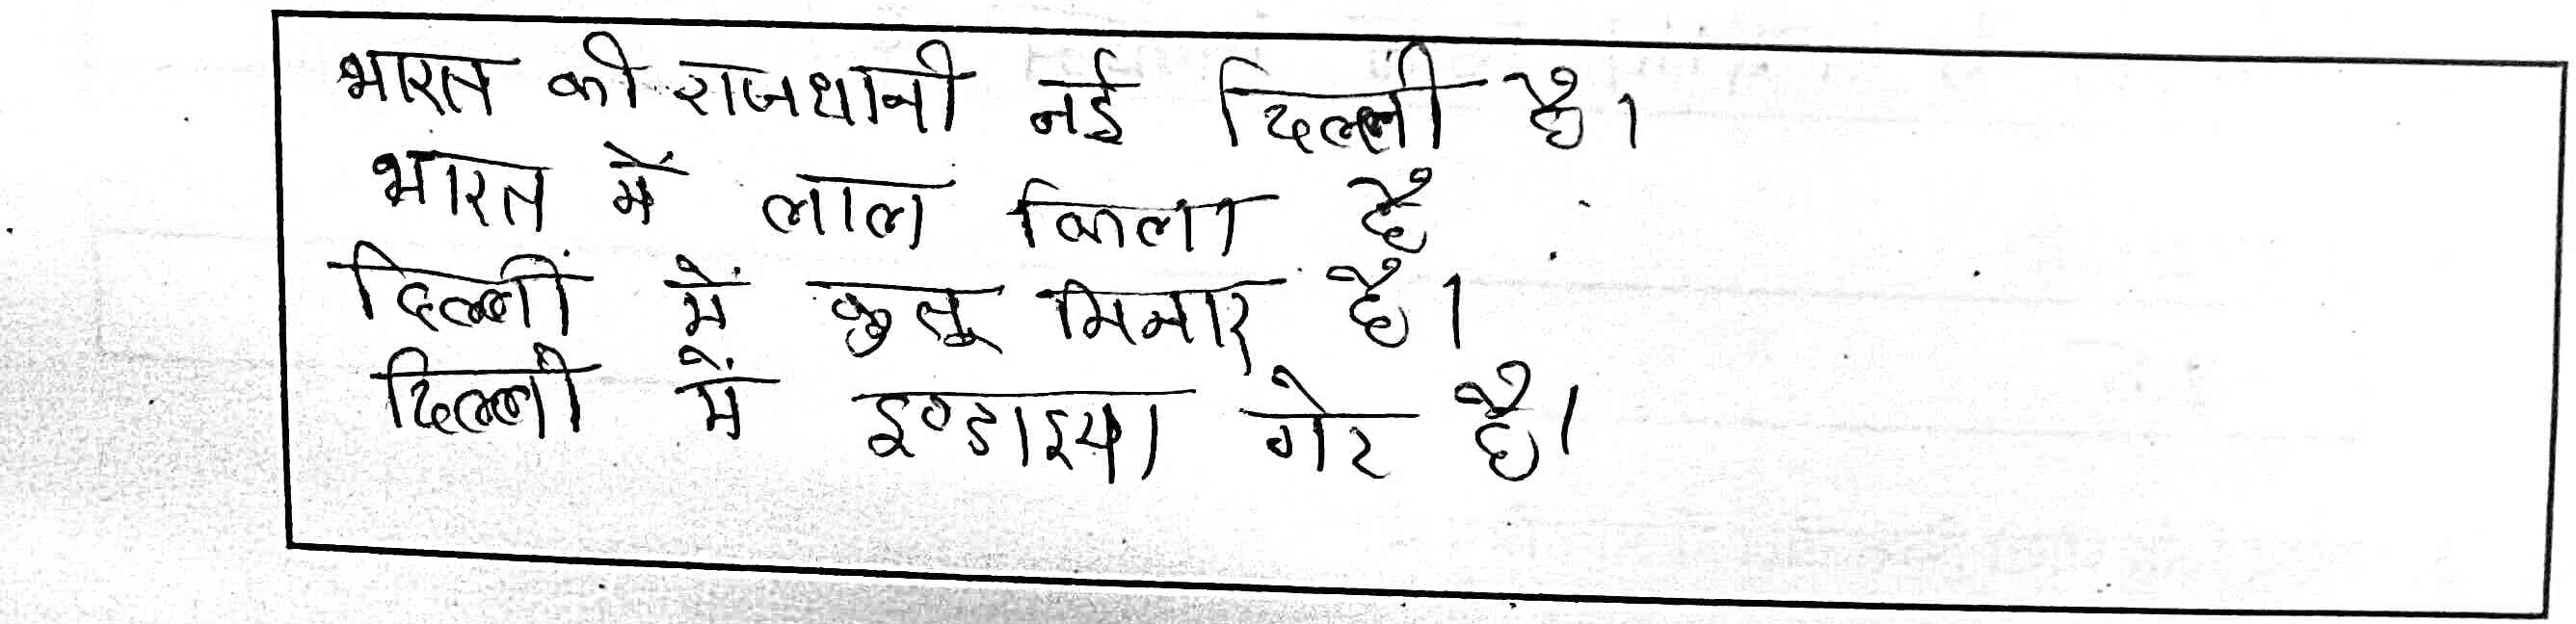 भारत की राजधानी नई दिल्ली है।
भारत में लाल किला है
दिल्ली में कुतू मिनार है।
दिल्ली में इण्डाइया गेर है।